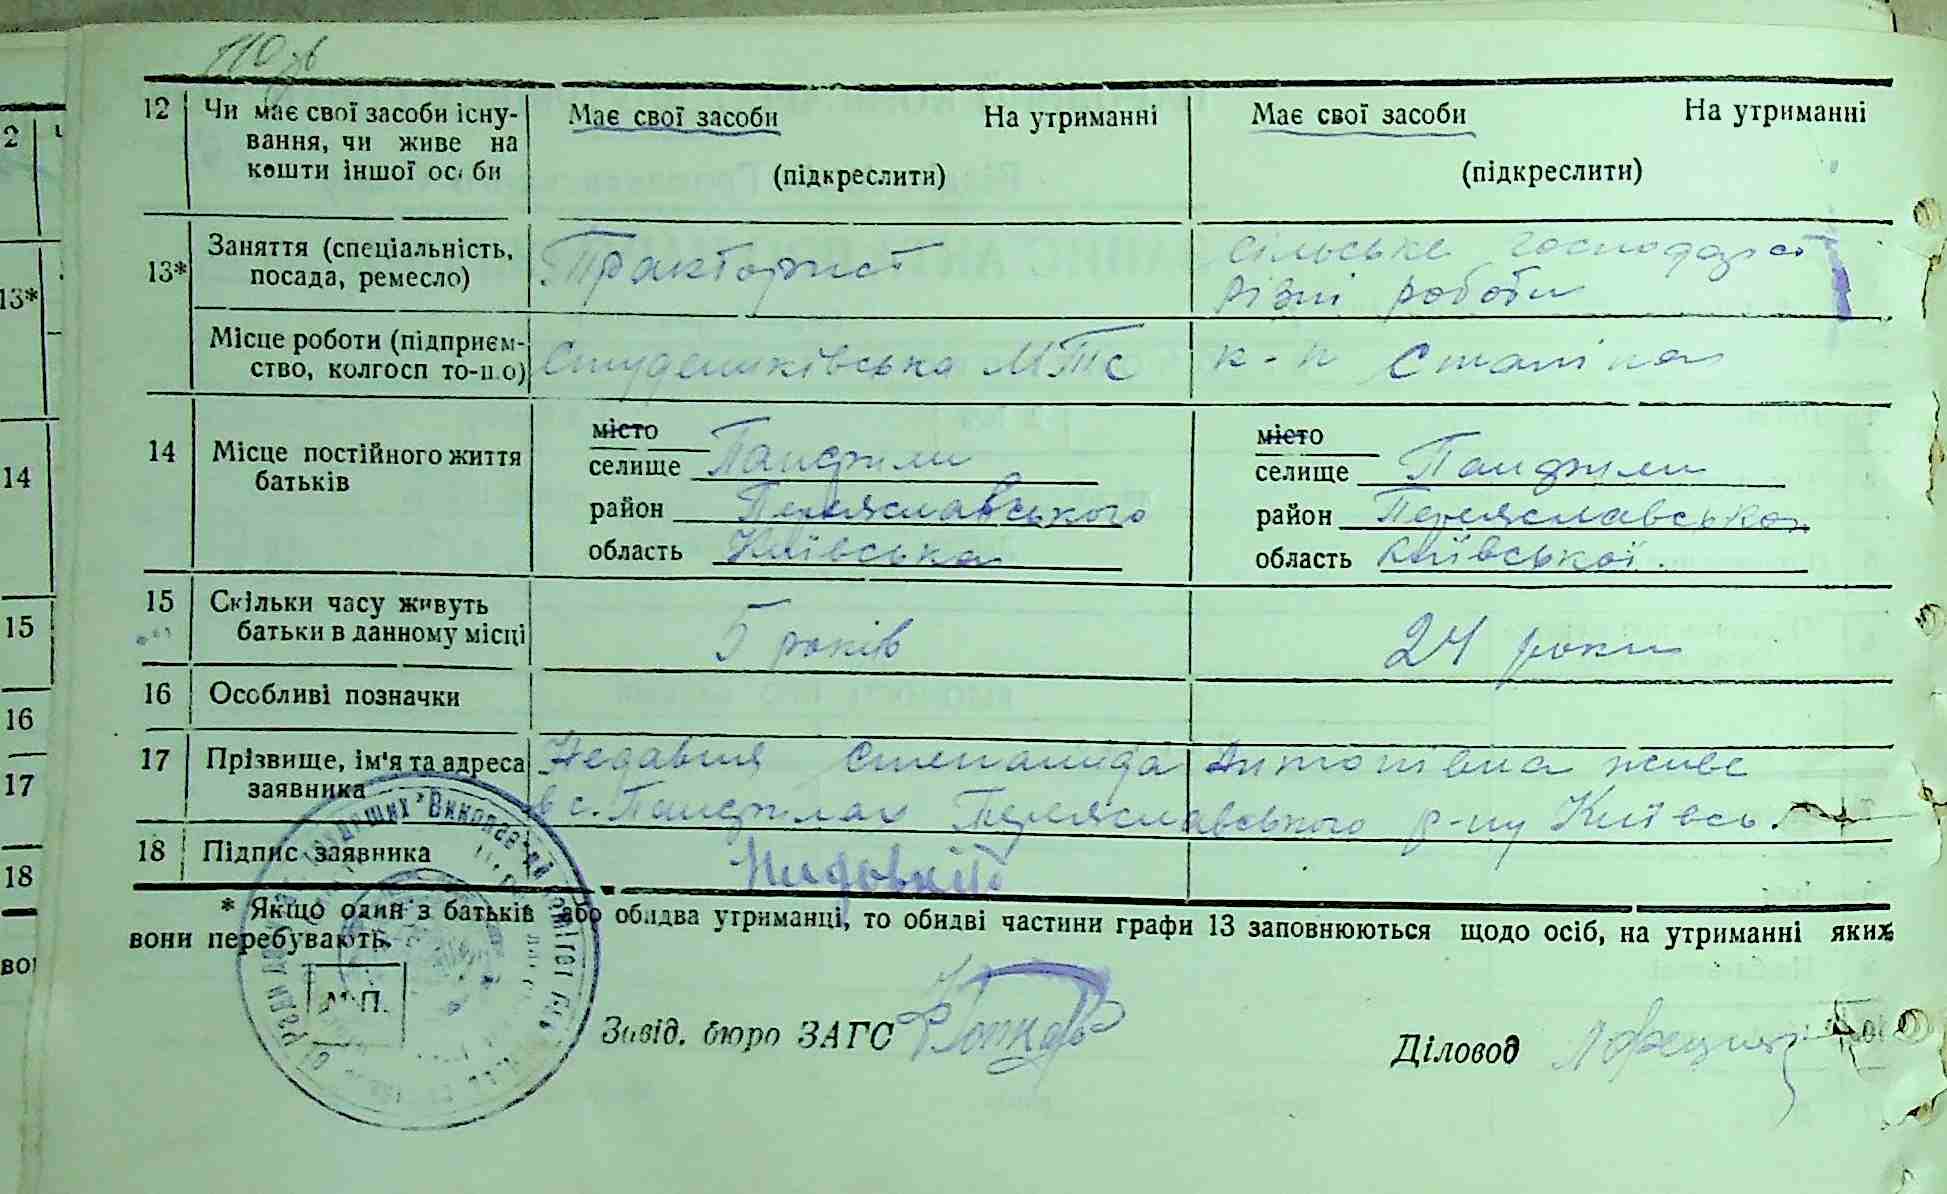 110 зв
12 Чи має свої засоби існу- Має свої засоби На утриманні Має свої засоби На утриманні
вання, чи живе на
кошти іншої особи (підкреслити) (підкреслити)
13* Заняття (спеціальність, Тракторист сільське господарст
посада, ремесло) різні роботи
Місце роботи (підприєм- Студениківська МТС к-п Сталіна
ство, колгосп то-що)
14 Місце постійного життя місто місто
батьків селище Панфили селище Панфили
район Переяславського район Переяславсько
область Київська область Київської.
15 Скільки часу живуть 5 років 24 роки
батьки в данному місці
16 Особливі позначки
17 Прізвище, ім'я та адреса Недавня Степанида Антонівна живе
заявника в с. Панфилах Переяславського р-ну Київсь.
18 Підпис заявника
* Якщо один з батьків або обидва утриманці, то обидві частини графи 13 заповнюються щодо осіб, на утриманні яких
вони перебувають.
М. П.
Завід. бюро ЗАГС
Діловод
2
13*
14
15
16
17
18